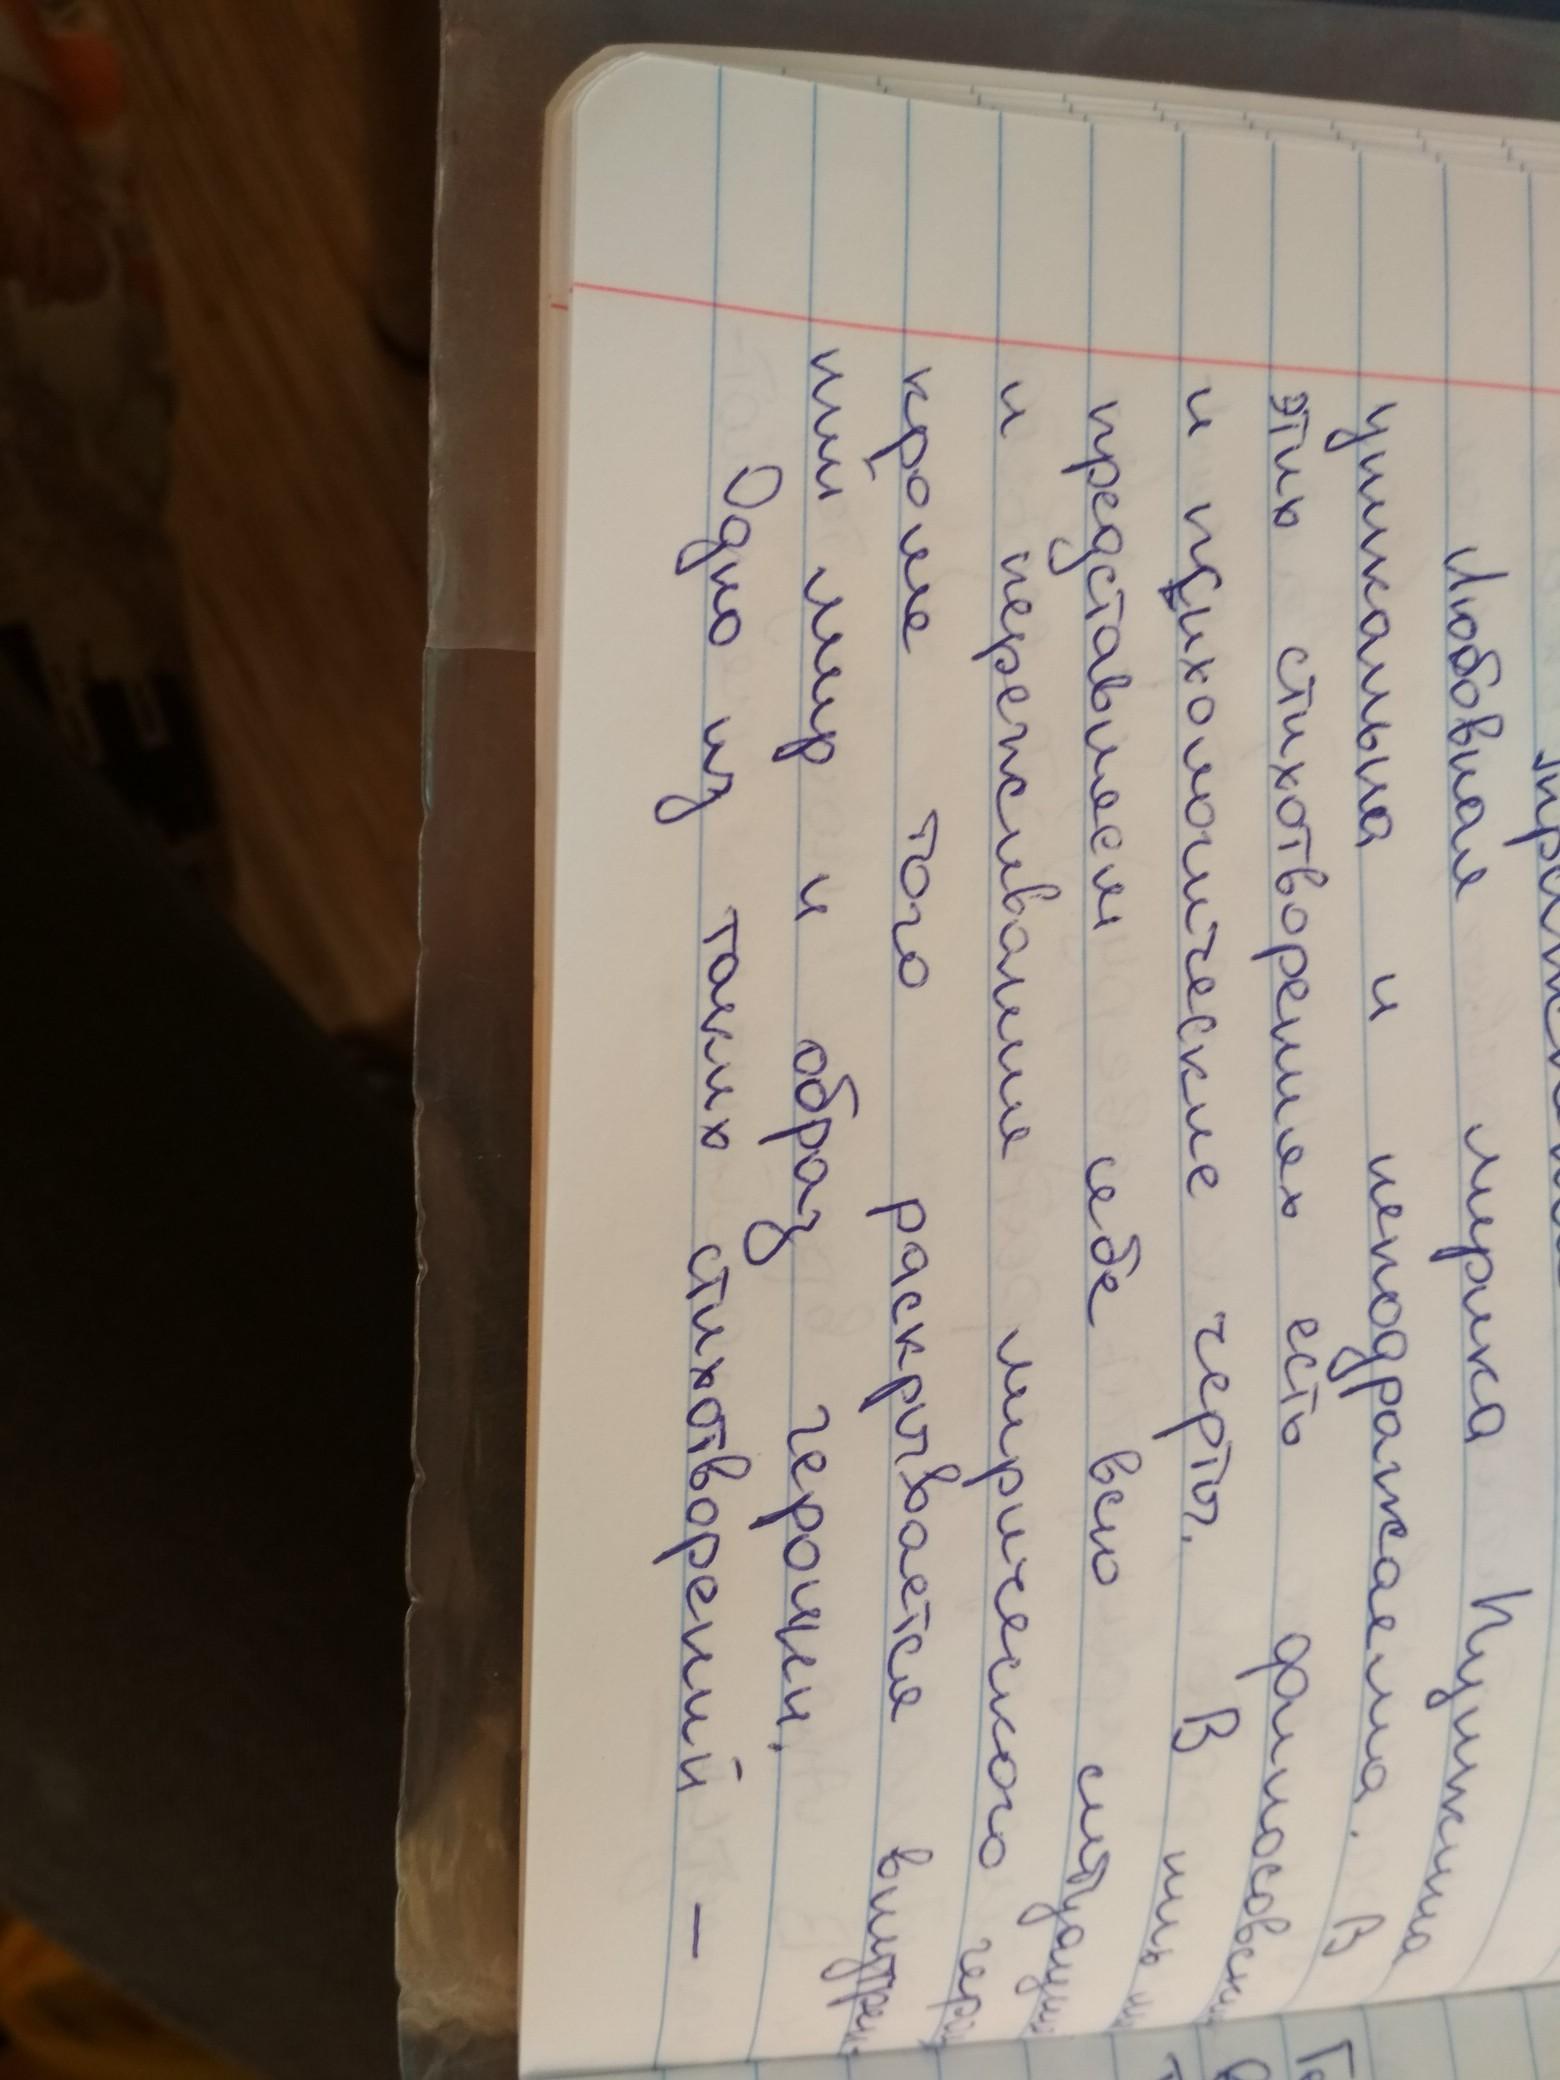 Любовная лирика Пушкина
уникальна и неподражаема. В
этих стихотворениях есть философские
и психологические черты. В них
представляем себе всю ситуацию
и переживание лирического героя
кроме того раскрывается внутрен-
ний мир и образ героини.
Одно из таких стихотворений –